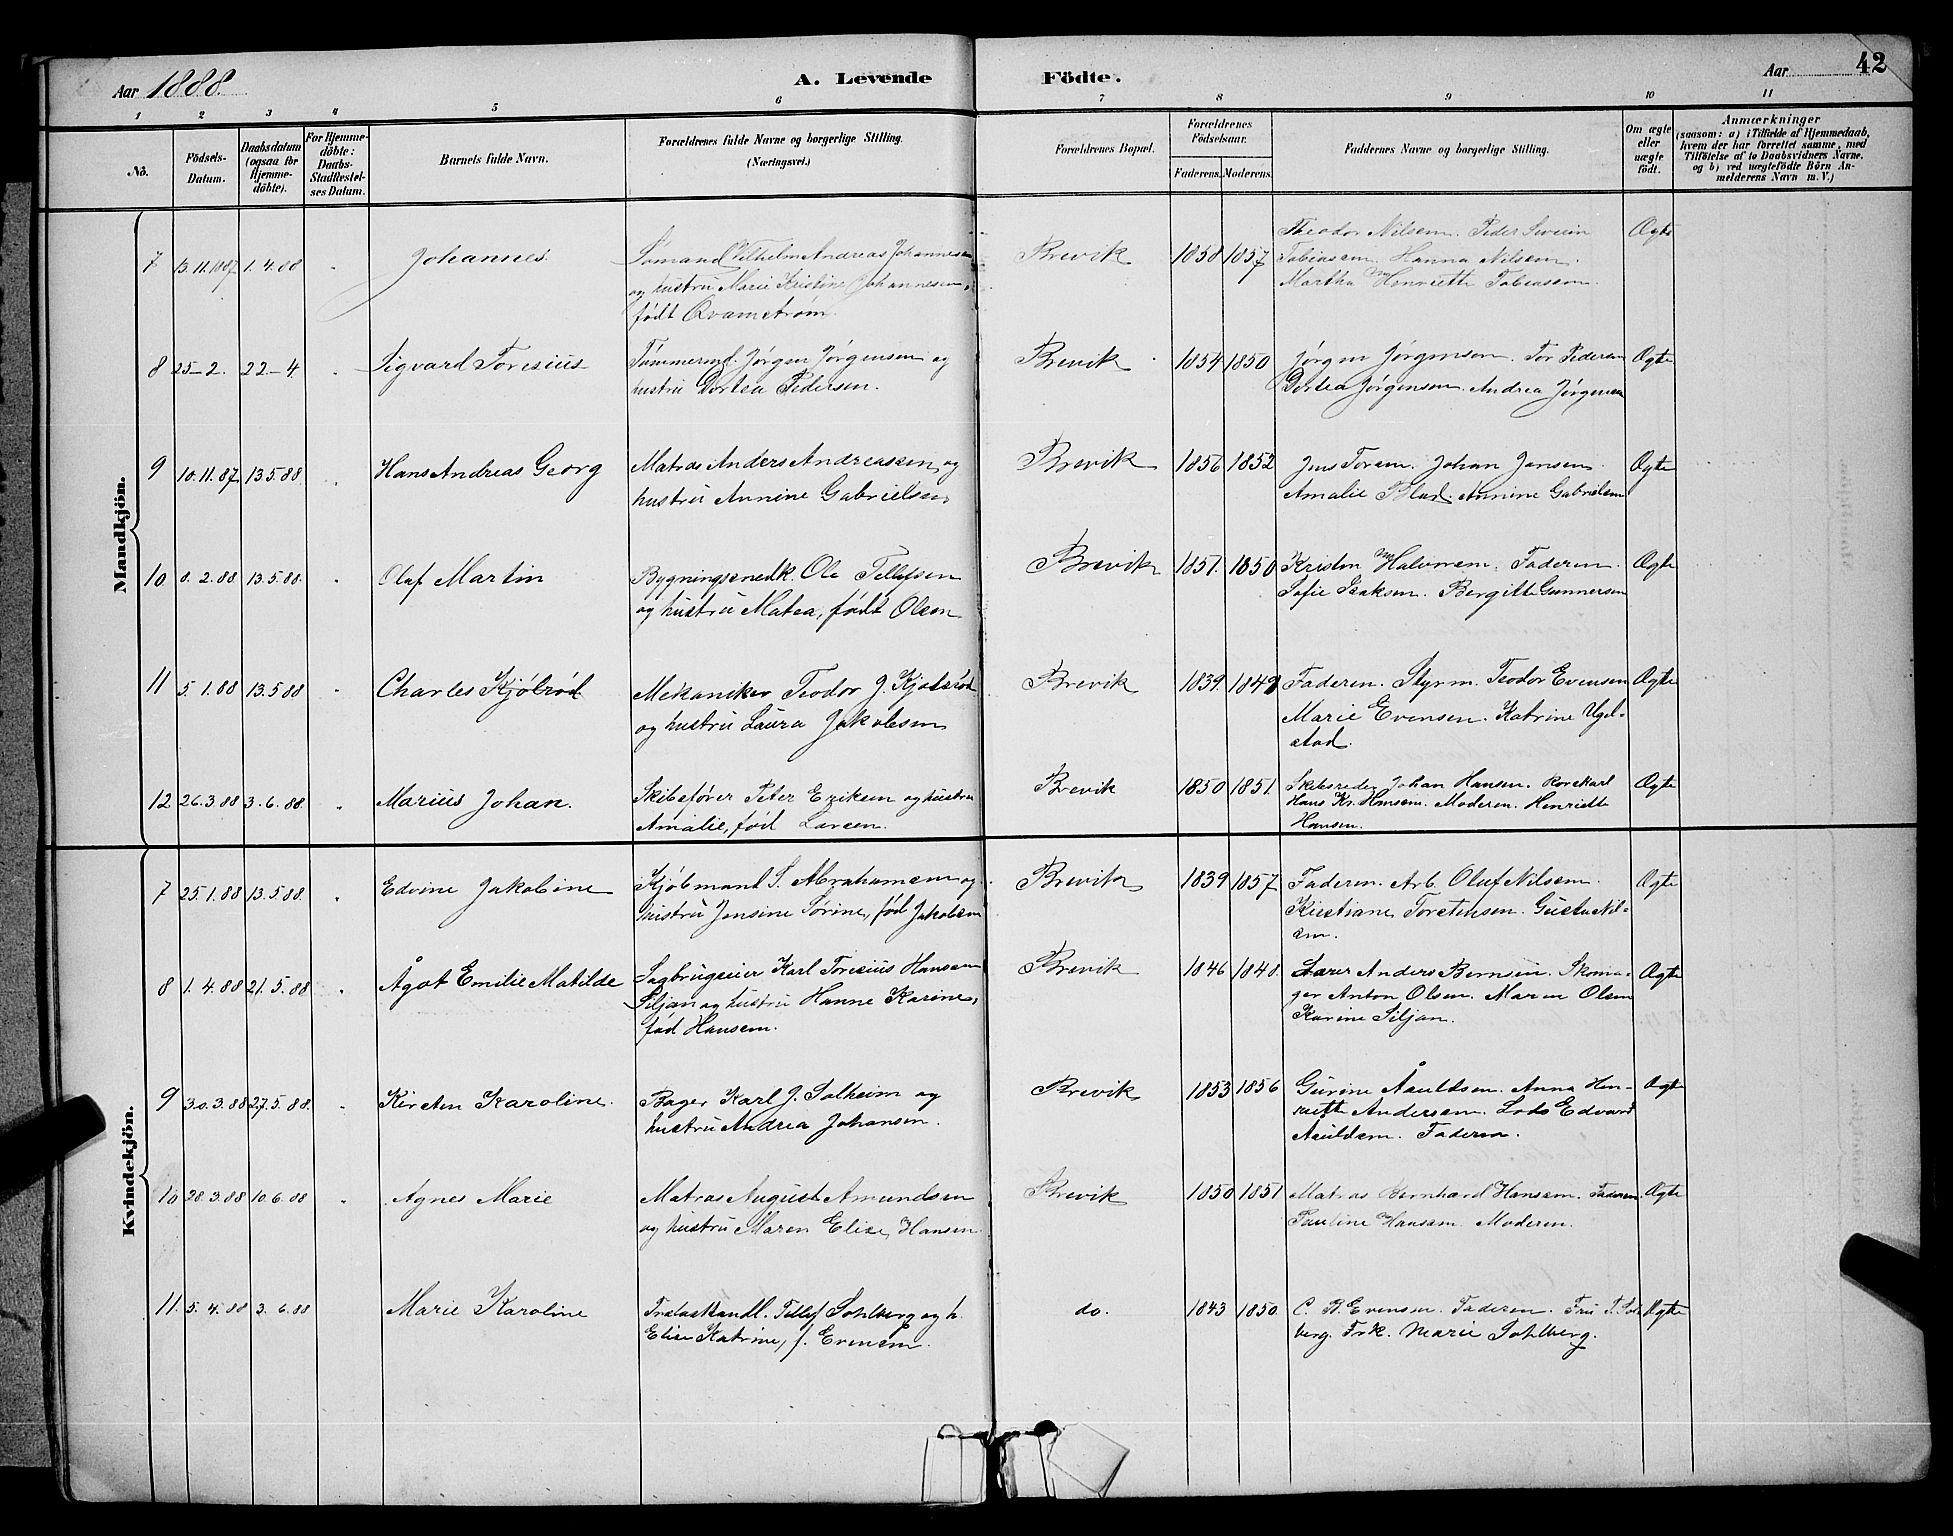 Aar 1888. A. Levende Födte. Aar 42
1 2 3 4 5 6 7 8 9 10 11
No. Födsels-Datum. Daabsdatum (ogsaa for Hjemme-döbte). For Hjemme-döbte: Daabs-Stadfestel-ses Datum. Barnets fulde Navn. Forældrenes fulde Navne og borgerlige Stilling. (Næringsvei.) Forældrenes Bopæl. Forældrenes Födselsaar. Faderens. Moderens. Faddernes Navne og borgerlige Stilling. Om ægte eller uægte födt. Anmærkninger (saasom: a) i Tilfælde af Hjemmedaab, hvem der har forrettet samme, med Tilföielse af to Daabsvidners Navne, og b) ved uægtefödte Börn An-melderens Navn m. V.)
Mandkjön.
7 13.11.1887 1.4.88 " Johannes. Sømand Vilhelm Andreas Johannesen Brevik 1858 1857 Theodor Nilsen. Peder Severin Ægte
og hustru Marie Kristine Johannesen, Tobiassen. Hanna Nilsen.
født Qvamstrøm. Martha Henriette Tobiassen.
8 25-2. 22-4. " Sigvard Toresius Tømmermd. Jørgen Jørgensen og Brevik 1854 1850 Jørgen Jørgensen. Tor Pedersen Ægte
hustru Dortea Pedersen. Dortea Jørgensen. Andrea Jørgensen
9 10.11.87 13.5.88 " Hans Andreas Georg Matros Anders Andreassen og Brevik 1856 1852 Jens Toresen. Johan Jansen. Ægte
hustru Annine Gabrielsen, Amalie Blad. Annine Gabrielsen
10 8.2.88 13.5.88. " Olaf Martin Bygningssnedk. Ole Tellefsen Brevik 1851. 1850 Kristen Halvorsen. Faderen. Ægte
og hustru Matea, født Olsen Sofie Isaksen. Bergitte Gunnersen
11 5.1.88 13.5.88 " Charles Kjølsrød Mekaniker Teodor J. Kjølsrød Brevik 1839. 1849 Faderen. Styrm. Teodor Evensen Ægte
og hustru Laura Jakobsen Marie Evensen. Katrine Ugel-
stad.
12 26.3.88 3.6.88. " Marius Johan. Skibsfører Peter Eriksen og hustru Brevik 1850 1851. Skibsreder Johan Hansen. Rorskarl Ægte
Amalie, fød Larsen. Hans Kr. Hansen. Moderen. Henriette
Hansen.
Kvindekjön.
7 25.1.88 13.5.88. " Edvine Jakobine Kjøbmand S. Abrahamsen og Brevik 1839 1857 Faderen. Arb. Oluf Nilsen. Ægte
hustru Jensine Sørine, fød Jakobsen Kristiane Torstensen. Gusta Nil-
sen.
8 1.4.88 21.5.88 " Ågot Emilie Matilde Sagbrugseier Karl Toresius Hansen Brevik 1846 1848. Lærer Anders Bernsen. Skoma- Ægte
Siljan og hustru Hanne Karine, ger Anton Olsen. Maren Olsen
fød Hansen. Karine Siljan.
9 30.3.88 27.5.88. " Kirsten Karoline. Bager Karl J. Solheim og Brevik 1853 1856 Gurine Åsuldsen. Anna Hen- Ægte
hustru Andrea Johansen. riette Andersen. Lods Edvard
Asuldsen. Faderen.
10 28.3.88 10.6.88 " Agnes Marie Matros August Amundsen Brevik 1850 1851 Matros Bernhard Hansen. Faderen. Ægte
og hustru Maren Elise, Hansen. Pauline Hansen. Moderen.
11. 5.4.88 3.6.88 Marie Karoline Trælasthandl. Tellef Sohlberg og h. do. 1843 1850. C. R. Evensen. Faderen. Fru T. Sohl- Ægte
Elise Katrine, f. Evensen. berg. Frk. Marie Sohlberg.